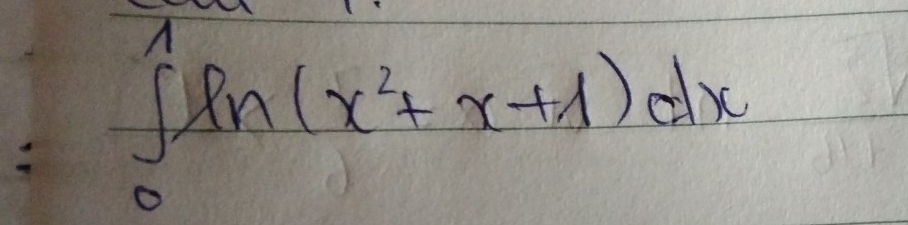 = ∫₀¹ ln(x²+x+1)dx